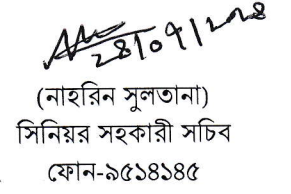 28/07/2024
(নাহরিন সুলতানা)
সিনিয়র সহকারী সচিব
ফোন-৯৫১৪১৪৫